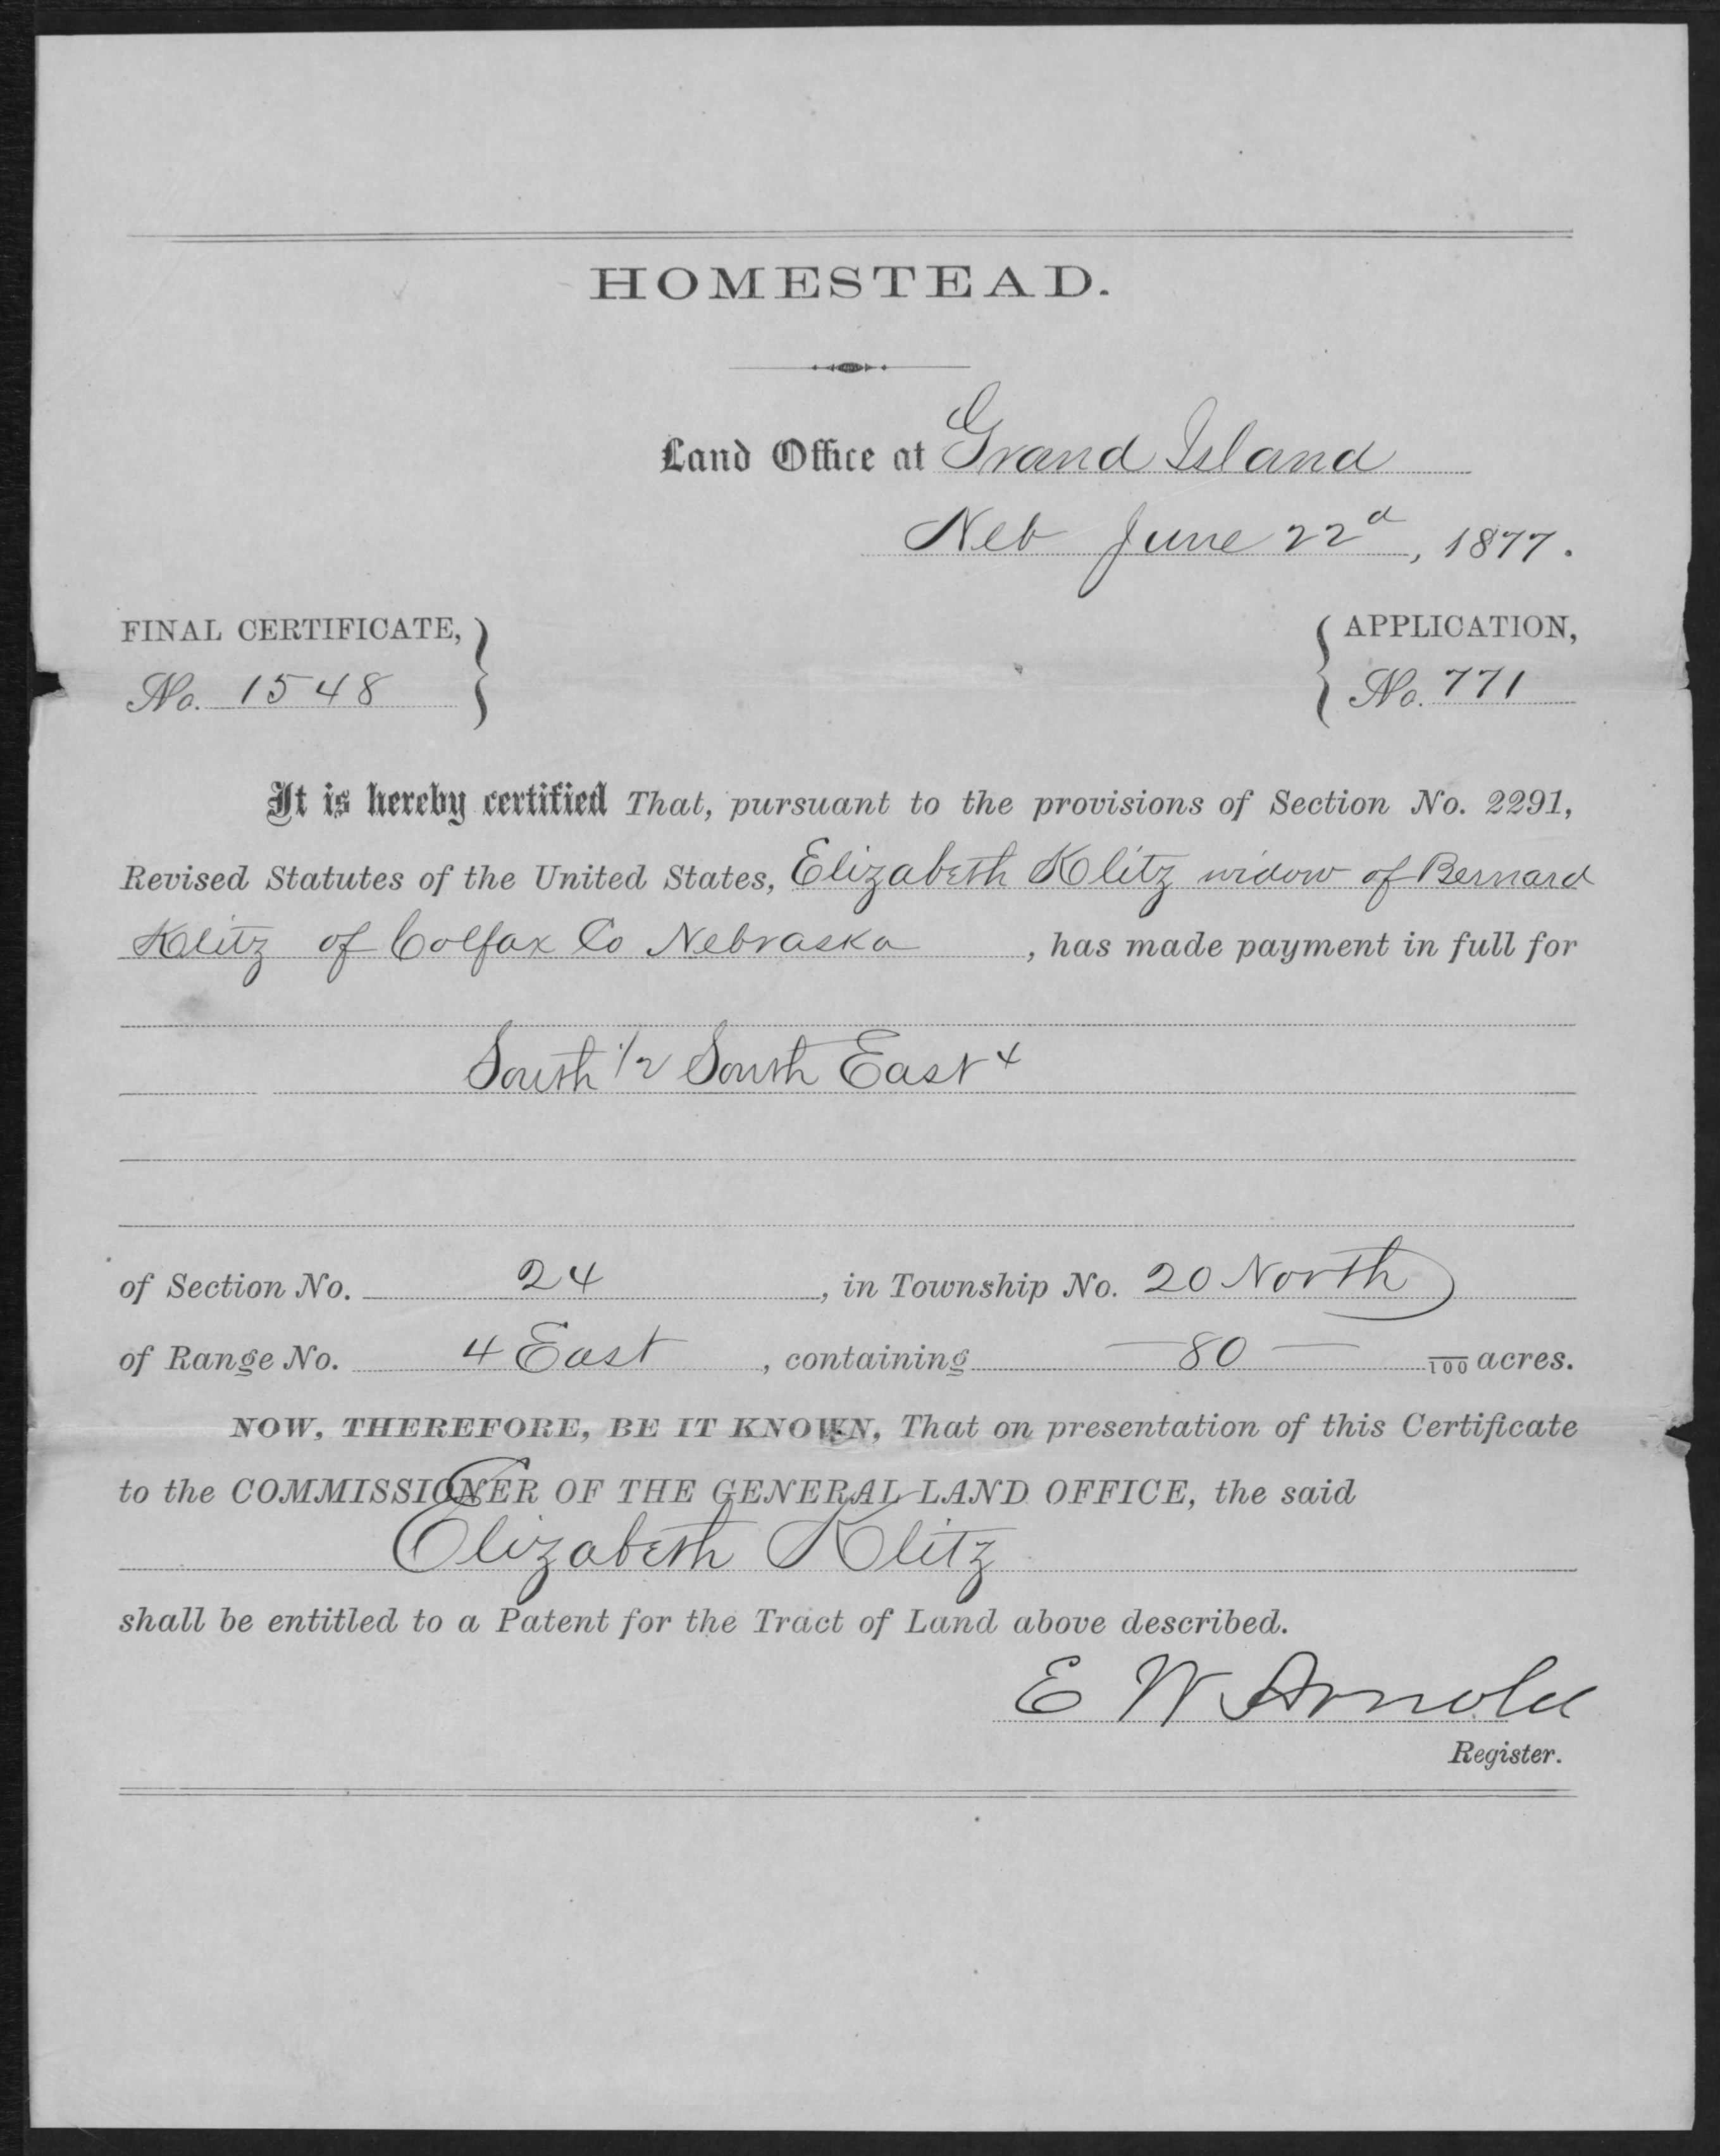 HOMESTEAD.
Land Office at Grand Island
Neb June 22d, 1877.
FINAL CERTIFICATE, No. 1548
APPLICATION, No. 771
It is hereby certified That, pursuant to the provisions of Section No. 2291,
Revised Statutes of the United States, Elizabeth Klitz widow of Bernard
Klitz of Colfax Co Nebraska, has made payment in full for
South 1/2 South East 4
of Section No. 24, in Township No. 20 North
of Range No. 4 East, containing —80— /100 acres.
NOW, THEREFORE, BE IT KNOWN, That on presentation of this Certificate
to the COMMISSIONER OF THE GENERAL LAND OFFICE, the said
Elizabeth Klitz
shall be entitled to a Patent for the Tract of Land above described.
E W Arnold
Register.